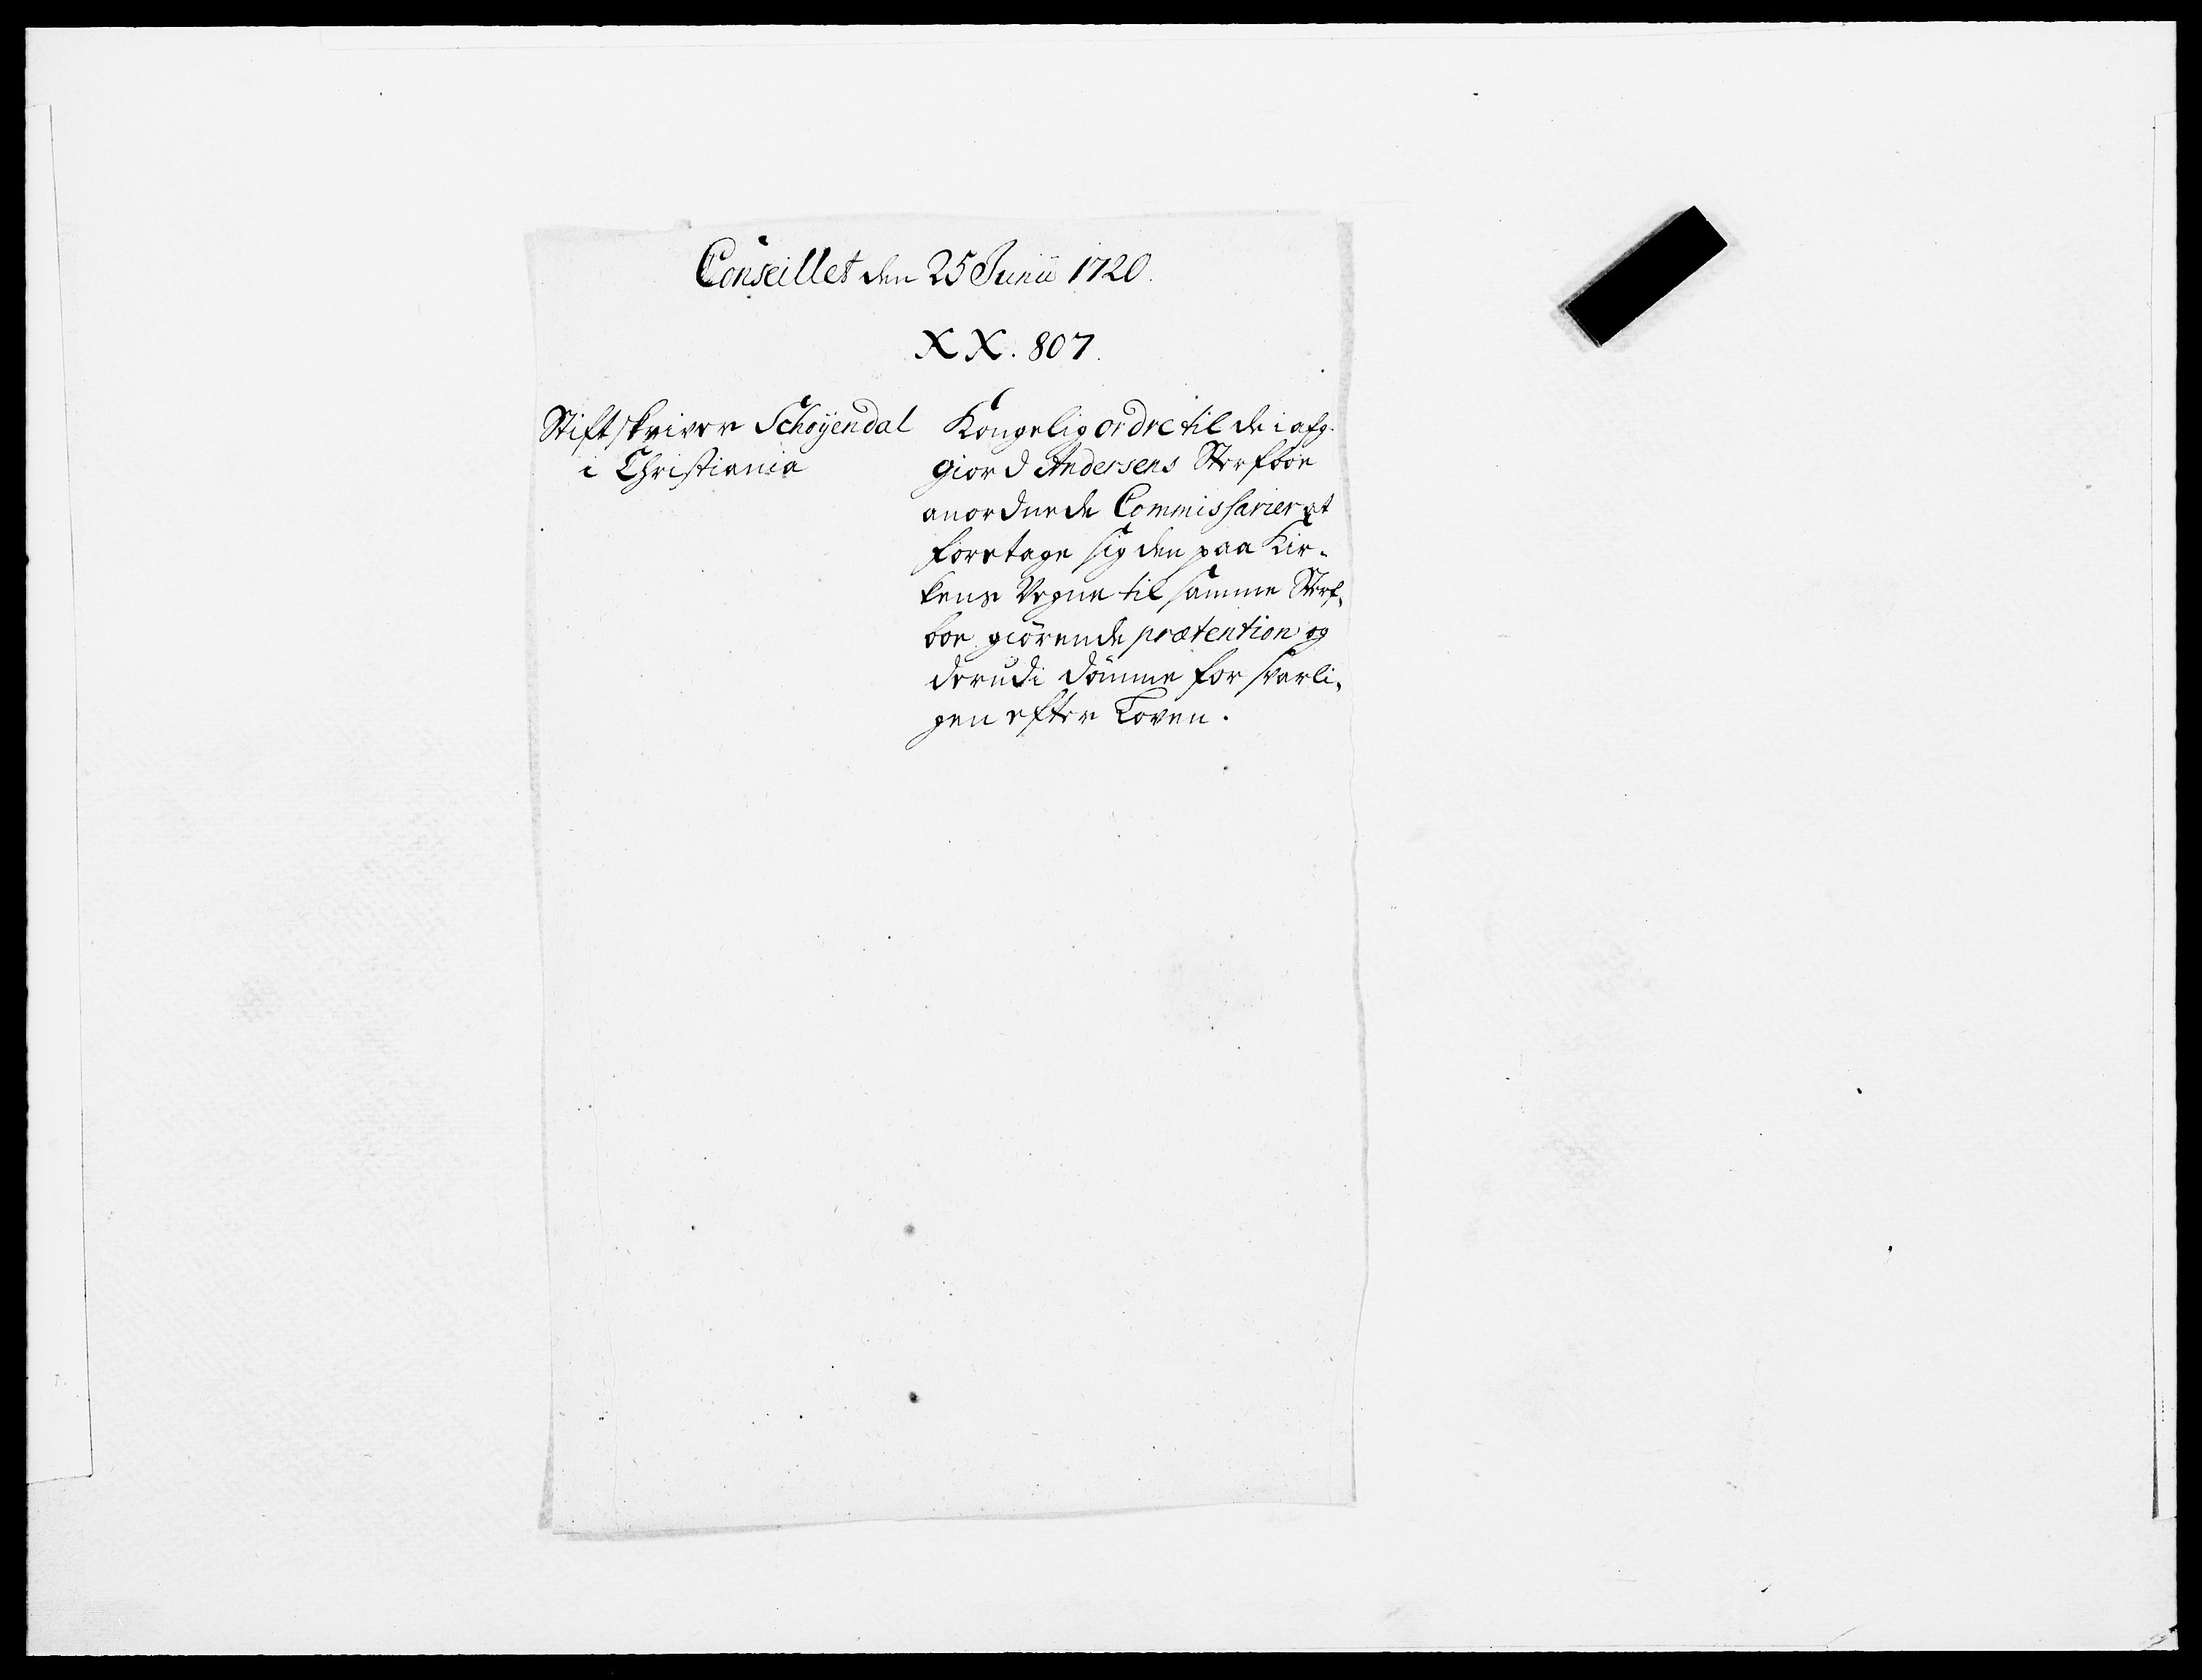 Conseillet den 25 Junii 1720.
XX. 807.
Stiftskriver Schøyendal
i Christiania
Kongelig ordre til de i afg.
Giord Andersens Sterfboe
anordnede Commissarier at
foretage sig den paa Kir-
kens Vegne til samme Sterf-
boe giørende prætention og
derudi dømme forsvarli-
gen efter Loven.